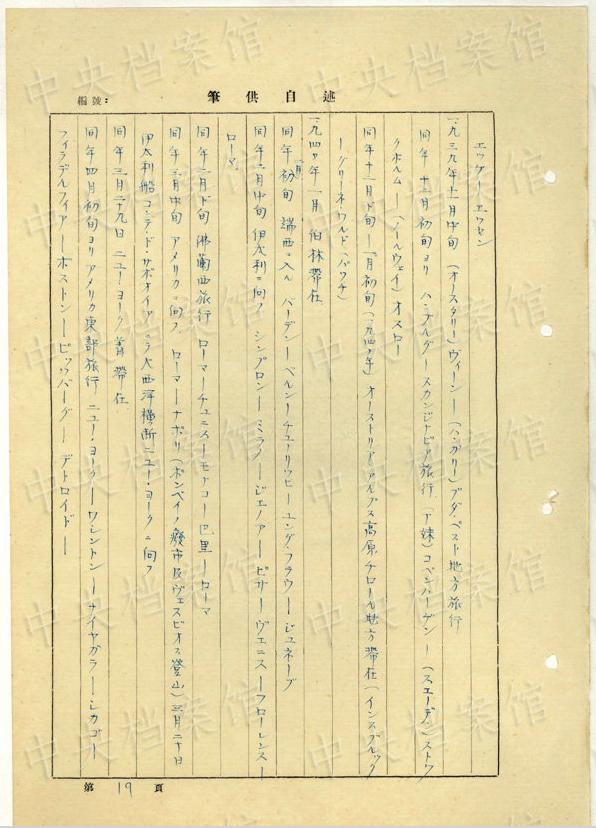 編號:
筆供自述
エッケーエッセン
一九三九年十一月中旬 (オースタリー)ヴィーン―(ハンガリー)ブダペスト地方旅行
同年十二月初旬ヨリ ハンブルグ―スカンジナビア旅行 (丁抹)コペンハーゲン―(スエーデン)ストツ
クホルム―(ノールウェイ)オスロー
同年十二月下旬―一月初旬(一九四〇年) オーストリアアルプス高原チロール地方滞在(インスブルック
―グリーネワルド(バワチ)
一九四〇年一月 伯林滞在
同年二月初旬 瑞西ニ入ル バーデン―ベルン―チューリッヒ―ユングフラウ―ジュネーブ
同年二月中旬 伊太利ニ向フ シンプロン―ミラノ―ジェノア―ピサ―ヴェニス―フローレンス―
ローマ
同年二月下旬 佛蘭西旅行 ローマ―チュニス―モナコ―巴里―ローマ
同年三月中旬 アメリカニ向フ ローマ―ナポリ(ポンペイノ廢市及ヴェスビオス登山)三月二十日
伊太利船コンテ・ド・サボオイア ニテ大西洋横断ニューヨークニ向フ
同年三月二十九日 ニューヨーク着滞在
同年四月初旬ヨリアメリカ東部旅行 ニュー・ヨーク―ワシントン―ナイヤガラ―シカゴ―
フィラデルフィア―ボストン―ピッツバーグ―デトロイド―
第 19 頁
中央档案馆